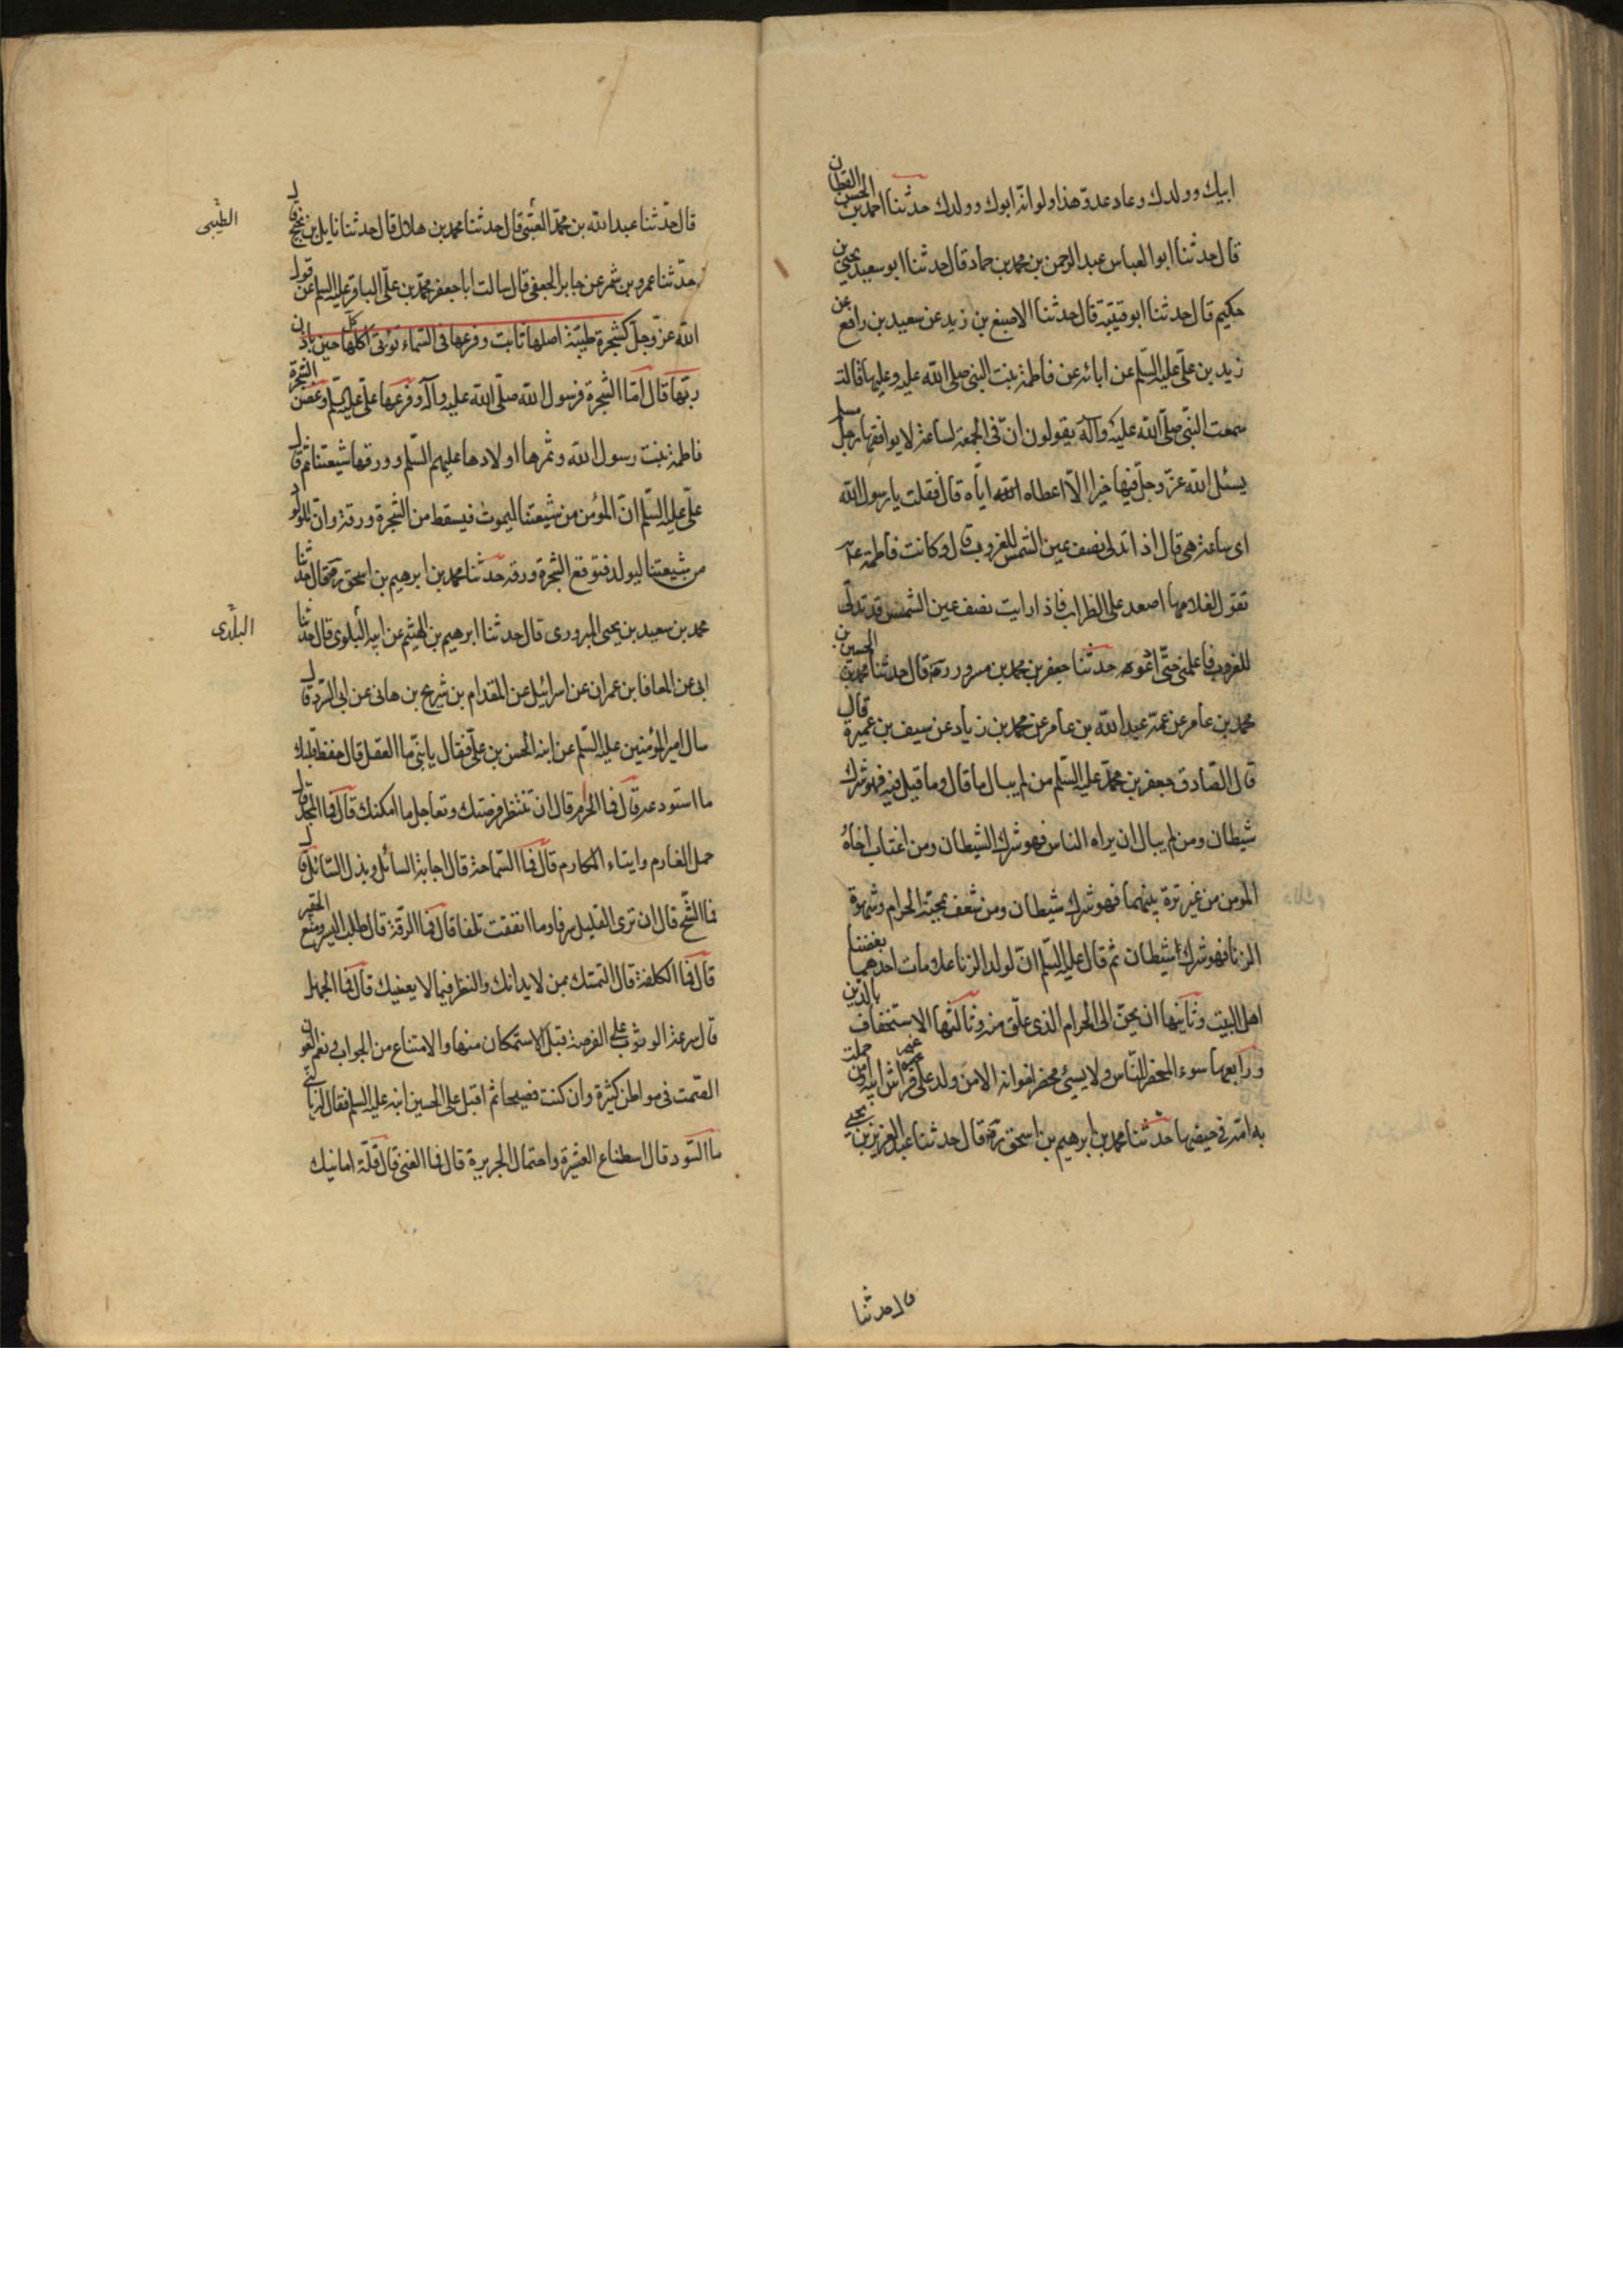 ابيك وولدك وعاد عدوّ هذا ولو انّه ابوك وولدك حدثنا احمد بن الحسن القطان
قال حدثنا ابو العباس عبد الرحمن بن محمد بن حماد قال حدثنا ابو سعيد يحيى بن
حكيم قال حدثنا ابو قتيبة قال حدثنا الاصبغ بن زيد عن سعيد بن رافع عن
زيد بن علىّ عليه السّلم عن ابائه عن فاطمة بنت النبى صلى الله عليه وعليها قالت
سمعت النبّى صلّى الله عليه وآله يقول ان فى الجمعة لساعة لا يوافقها رجل مسلم
يسئل الله عزّ وجلّ فيها خيرا الاّ اعطاه الله ايّاه قال فقلت يا رسول الله
اى ساعة هى قال اذا تدلى نصف عين الشمس للغروب قال وكانت فاطمة ع
تقول لغلامها اصعد على الظراب فاذا رايت نصف عين الشمس قد تدلّى
للغروب فاعلمنى حتّى ادعو حدثنا جعفر بن محمد بن مسرور ره قال حدثنا محمد بن الحسين بن
محمد بن عامر عن عمّه عبد الله بن عامر عن محمد بن زياد عن سيف بن عميرة قال
قال الصّادق جعفر بن محمّد عليه السّلم من لم يبال ما قال وما قيل فيه فهو شرك
شيطان ومن لم يبال ان يراه الناس فهو شرك الشيطان ومن اغتاب اخاهُ
المومن من غير ترة بينهما فهو شرك شيطان ومن شغف بمحبّة الحرام وشهوة
الزنا فهو شرك شيطان ثم قال عليه السّلم انّ لولد الزنا علامات احدهما بغضنا
اهل البيت وثانيها ان يحنّ الى الحرام الذى خلق منه وثالثها الاستخفاف بالدين
ورابعها سوء المحضر للنّاس ولا يسىء محضر اخوانه الا من ولد على غير فراش ابيه او من حملت
به امّه فى حيضها حدثنا محمد بن ابرهيم بن اسحق ره قال حدثنا عبد العزيز بن يحيى
قال حدثنا
قال حدّثنا عبد الله بن محمّد العبّثى قال حدثنا محمد بن هلال قال حدثنا نايل بن نجيح قال
الطيّبى
حدّثنا عمرو بن شمر عن جابر الجعفى قال سالت ابا جعفر محمّد بن علىّ الباقر عليه السلم عن قول
الله عزّ وجلّ كشجرة طيّبة اصلها ثابت وفرعها فى السّماء تؤتى اكلها كلّ حين باذن
ربّها قال امّا الشجرة فرسول الله صلّى الله عليه وآله وفرعها علىّ عليه السّلم وغصن الشجرة
فاطمة بنت رسول الله وثمرها اولادها عليهم السّلم وورقها شيعتنا ثم قال
علىّ عليه السّلم انّ المؤمن من شيعتنا ليموت فيسقط من الشّجرة ورقة وان المولود
من شيعتنا ليولد فتوقع الشجرة ورقة حدثنا محمد بن ابرهيم بن اسحق ره قال حدثنا
محمد بن سعيد بن يحيى البزورى قال حدثنا ابرهيم بن الهيثم عن ابيه البلوى قال حدثنا
البلدى
ابى عن المعافا بن عمران عن اسرائيل عن المقدام بن شريح بن هانى عن ابى السّرد قال
سال امير المؤمنين عليه السّلم عن ابنه الحسن بن علىّ فقال يا بنىّ ما العقل قال حفظ قلبك
ما استودعه قال فما الحزم قال ان تنتظر فرصتك وتعاجل ما امكنك قال فما المجد قال
حمل الغارم وايتاء المكارم قال فما السّماحة قال اجابة السائل وبذل السّائل قال
فما الشّح قال ان ترى القليل سرفا وما انفقت تلفا قال فما الرّقة قال طلب اليسير ومنع الحقير
قال فما الكلفة قال التمسّك بمن لا يدانك والنظر فيما لا يعنيك قال فما الجهل
قال سرعة الوثوب على الفرصة قبل الاستمكان منها والامتناع من الجواب ونعم العون
الصّمت فى مواطن كثيرة وان كنت فصيحا ثم اقبل على الحسين ابنه عليه السلم فقال له يا بنىّ
ما السّودد قال اصطناع العشيرة واحتمال الجريرة قال فما الغنى قال قلّة امانيك